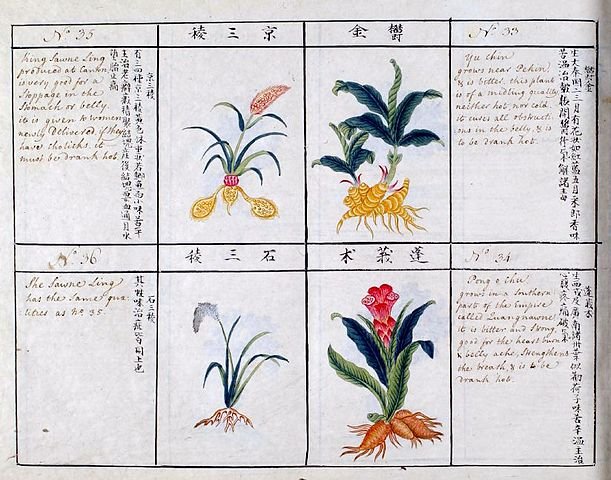 No 35
King Sawne Ling
produced at Canton,
is very good for a
Stoppage in the
Stomach or belly.
it is given to women
newly Delivered, if they
have cholicks it
must be drank hot.
京三稜
有三四种京三稜黄色体重状若鯽魚而小味苦辛
主治老癖癥瘕積聚結塊產後
墮胎止痛
京三稜
鬱金
No 33
Yu chin
grows near Pekin
& is bitter. this plant
is of a midling quality
neither hot nor cold
it cures all obstructi-
ons in the belly, & is
to be drank hot.
鬱金
生大秦國二三月有花状如紅藍五月采即香味
苦温治蠱
No 36
She Sawne Ling
has the Same qua-
lities as No 35.
石三稜
其性味治症皆同上也
石三稜
蓬莪术
No 34
Pong o chu
grows in a Southern
part of the Empire
called Quangnanwe.
it is bitter and Strong,
good for the heart burn
& belly ache, Strengthens
the breath, & is to be
drank hot.
蓬莪术
生西戎及廣南諸州葉似蘘荷子味苦辛温主治
心腹疼痛破氣